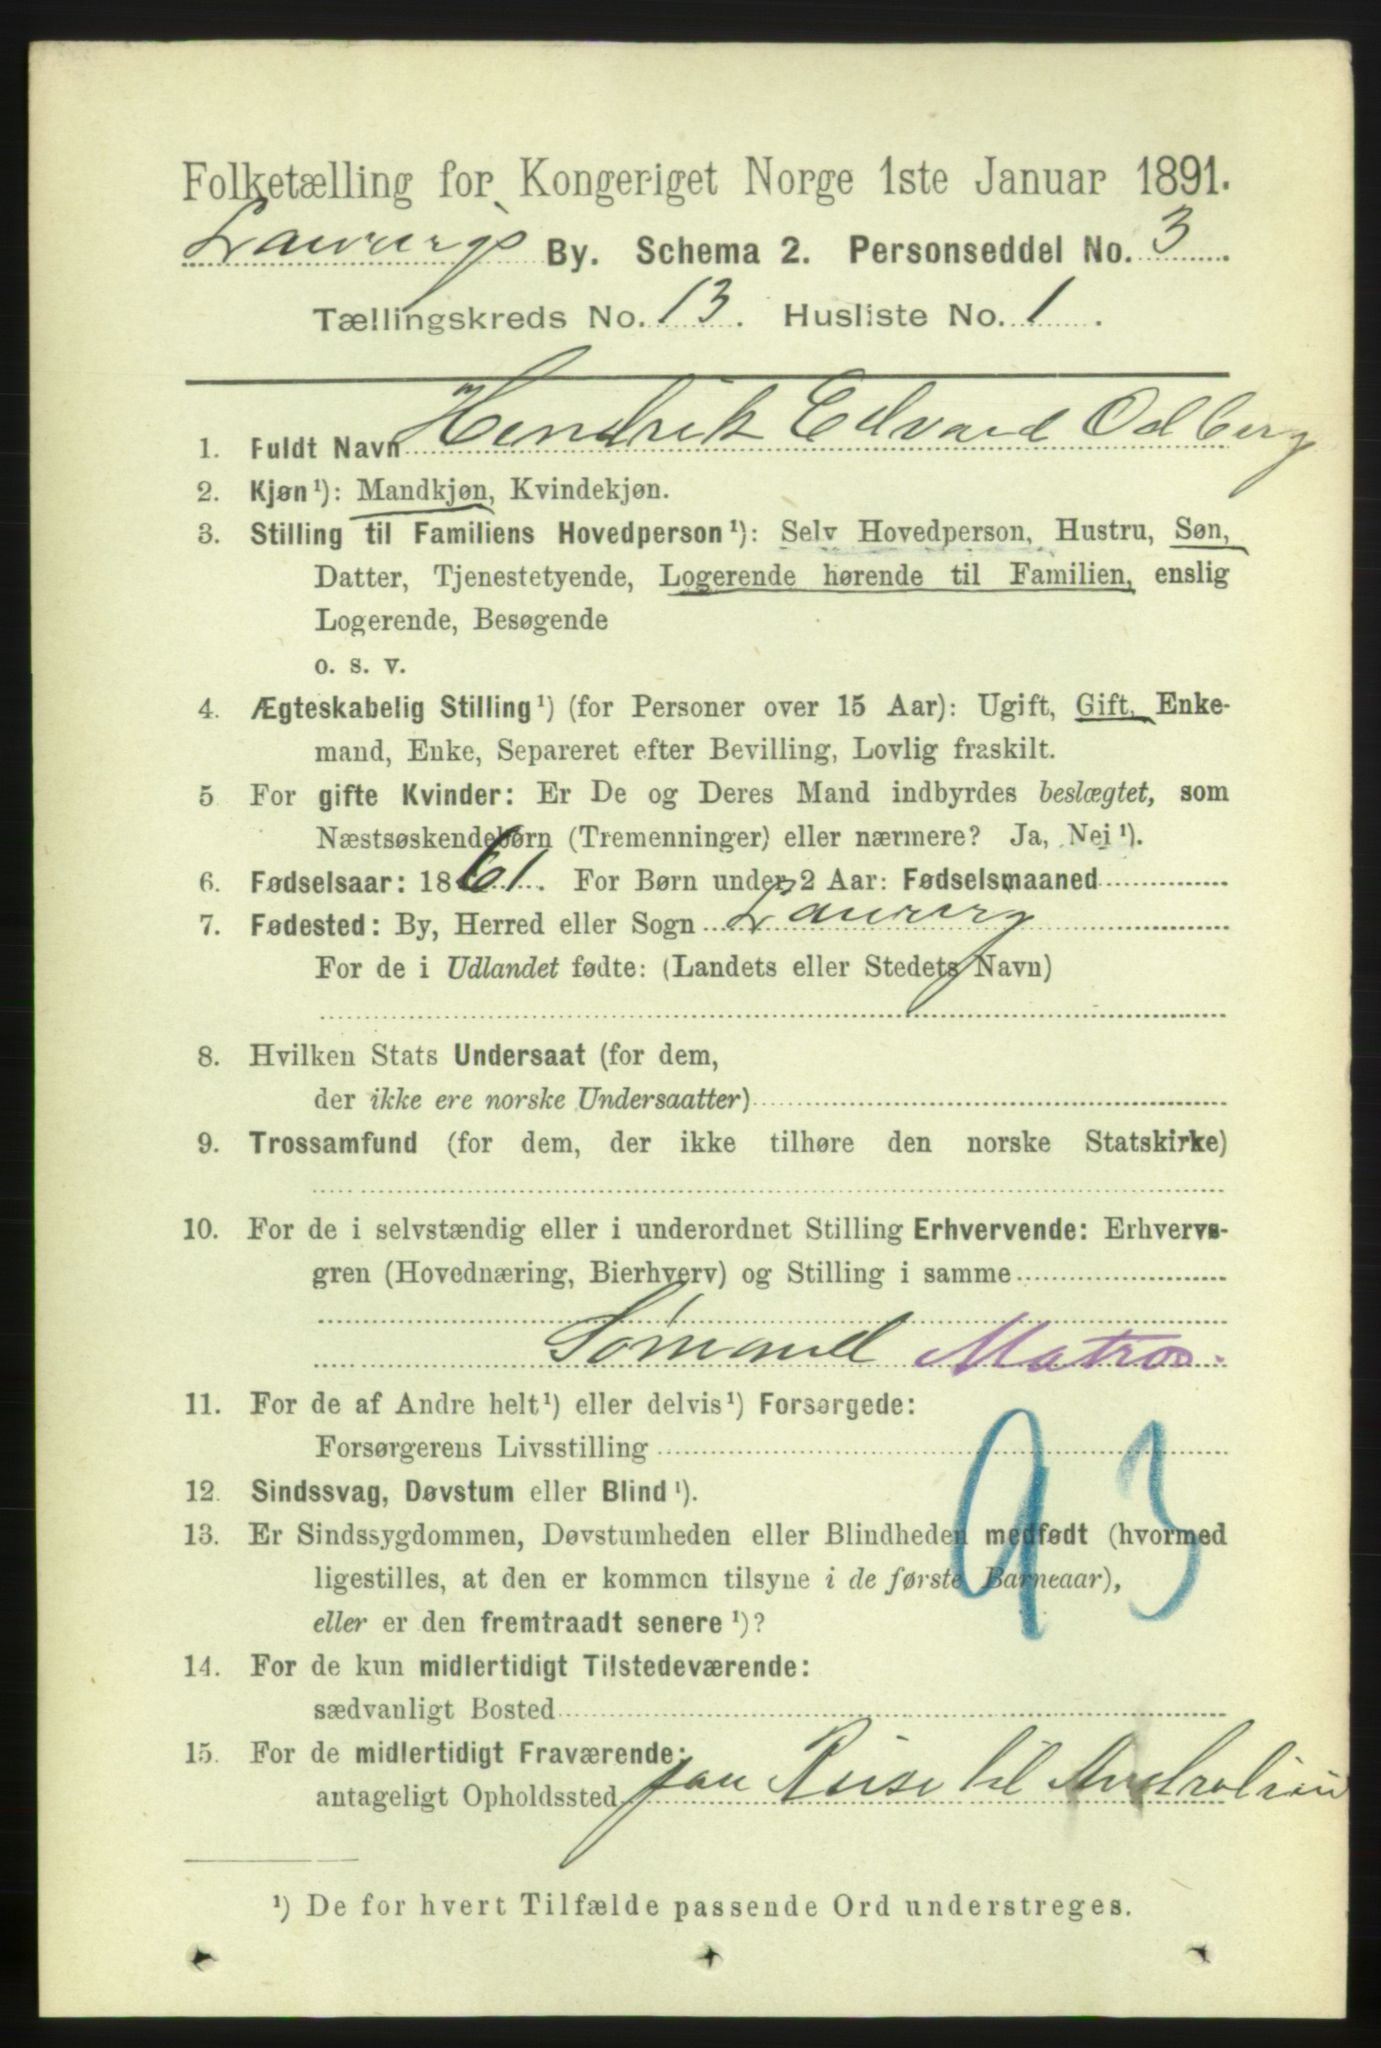 Folketælling for Kongeriget Norge 1ste Januar 1891.
Laurvigs By. Schema 2. Personseddel No. 3
Tællingskreds No. 13. Husliste No. 1.
1. Fuldt Navn Hendrik Edvard Odberg
2. Kjøn¹): Mandkjøn, Kvindekjøn.
3. Stilling til Familiens Hovedperson¹): Selv Hovedperson, Hustru, Søn,
Datter, Tjenestetyende, Logerende hørende til Familien, enslig
Logerende, Besøgende
o. s. v.
4. Ægteskabelig Stilling¹) (for Personer over 15 Aar): Ugift, Gift, Enke-
mand, Enke, Separeret efter Bevilling, Lovlig fraskilt.
5 For gifte Kvinder: Er De og Deres Mand indbyrdes beslægtet, som
Næstsøskendebørn (Tremenninger) eller nærmere? Ja, Nei¹).
6. Fødselsaar: 1861. For Børn under 2 Aar: Fødselsmaaned
7. Fødested: By, Herred eller Sogn Laurvig
For de i Udlandet fødte: (Landets eller Stedets Navn)
8. Hvilken Stats Undersaat (for dem,
der ikke ere norske Undersaatter)
9. Trossamfund (for dem, der ikke tilhøre den norske Statskirke)
10. For de i selvstændig eller i underordnet Stilling Erhvervende: Erhvervs-
gren (Hovednæring, Bierhverv) og Stilling i samme
Sømand Matros.
11. For de af Andre helt¹) eller delvis¹) Forsørgede:
Forsørgerens Livsstilling
12. Sindssvag, Døvstum eller Blind¹).
93
13. Er Sindssygdommen, Døvstumheden eller Blindheden medfødt (hvormed
ligestilles, at den er kommen tilsyne i de første Barneaar),
eller er den fremtraadt senere¹)?
14. For de kun midlertidigt Tilstedeværende:
sædvanligt Bosted
15. For de midlertidigt Fraværende:
antageligt Opholdssted paa Reise til Australien
¹) De for hvert Tilfælde passende Ord understreges.